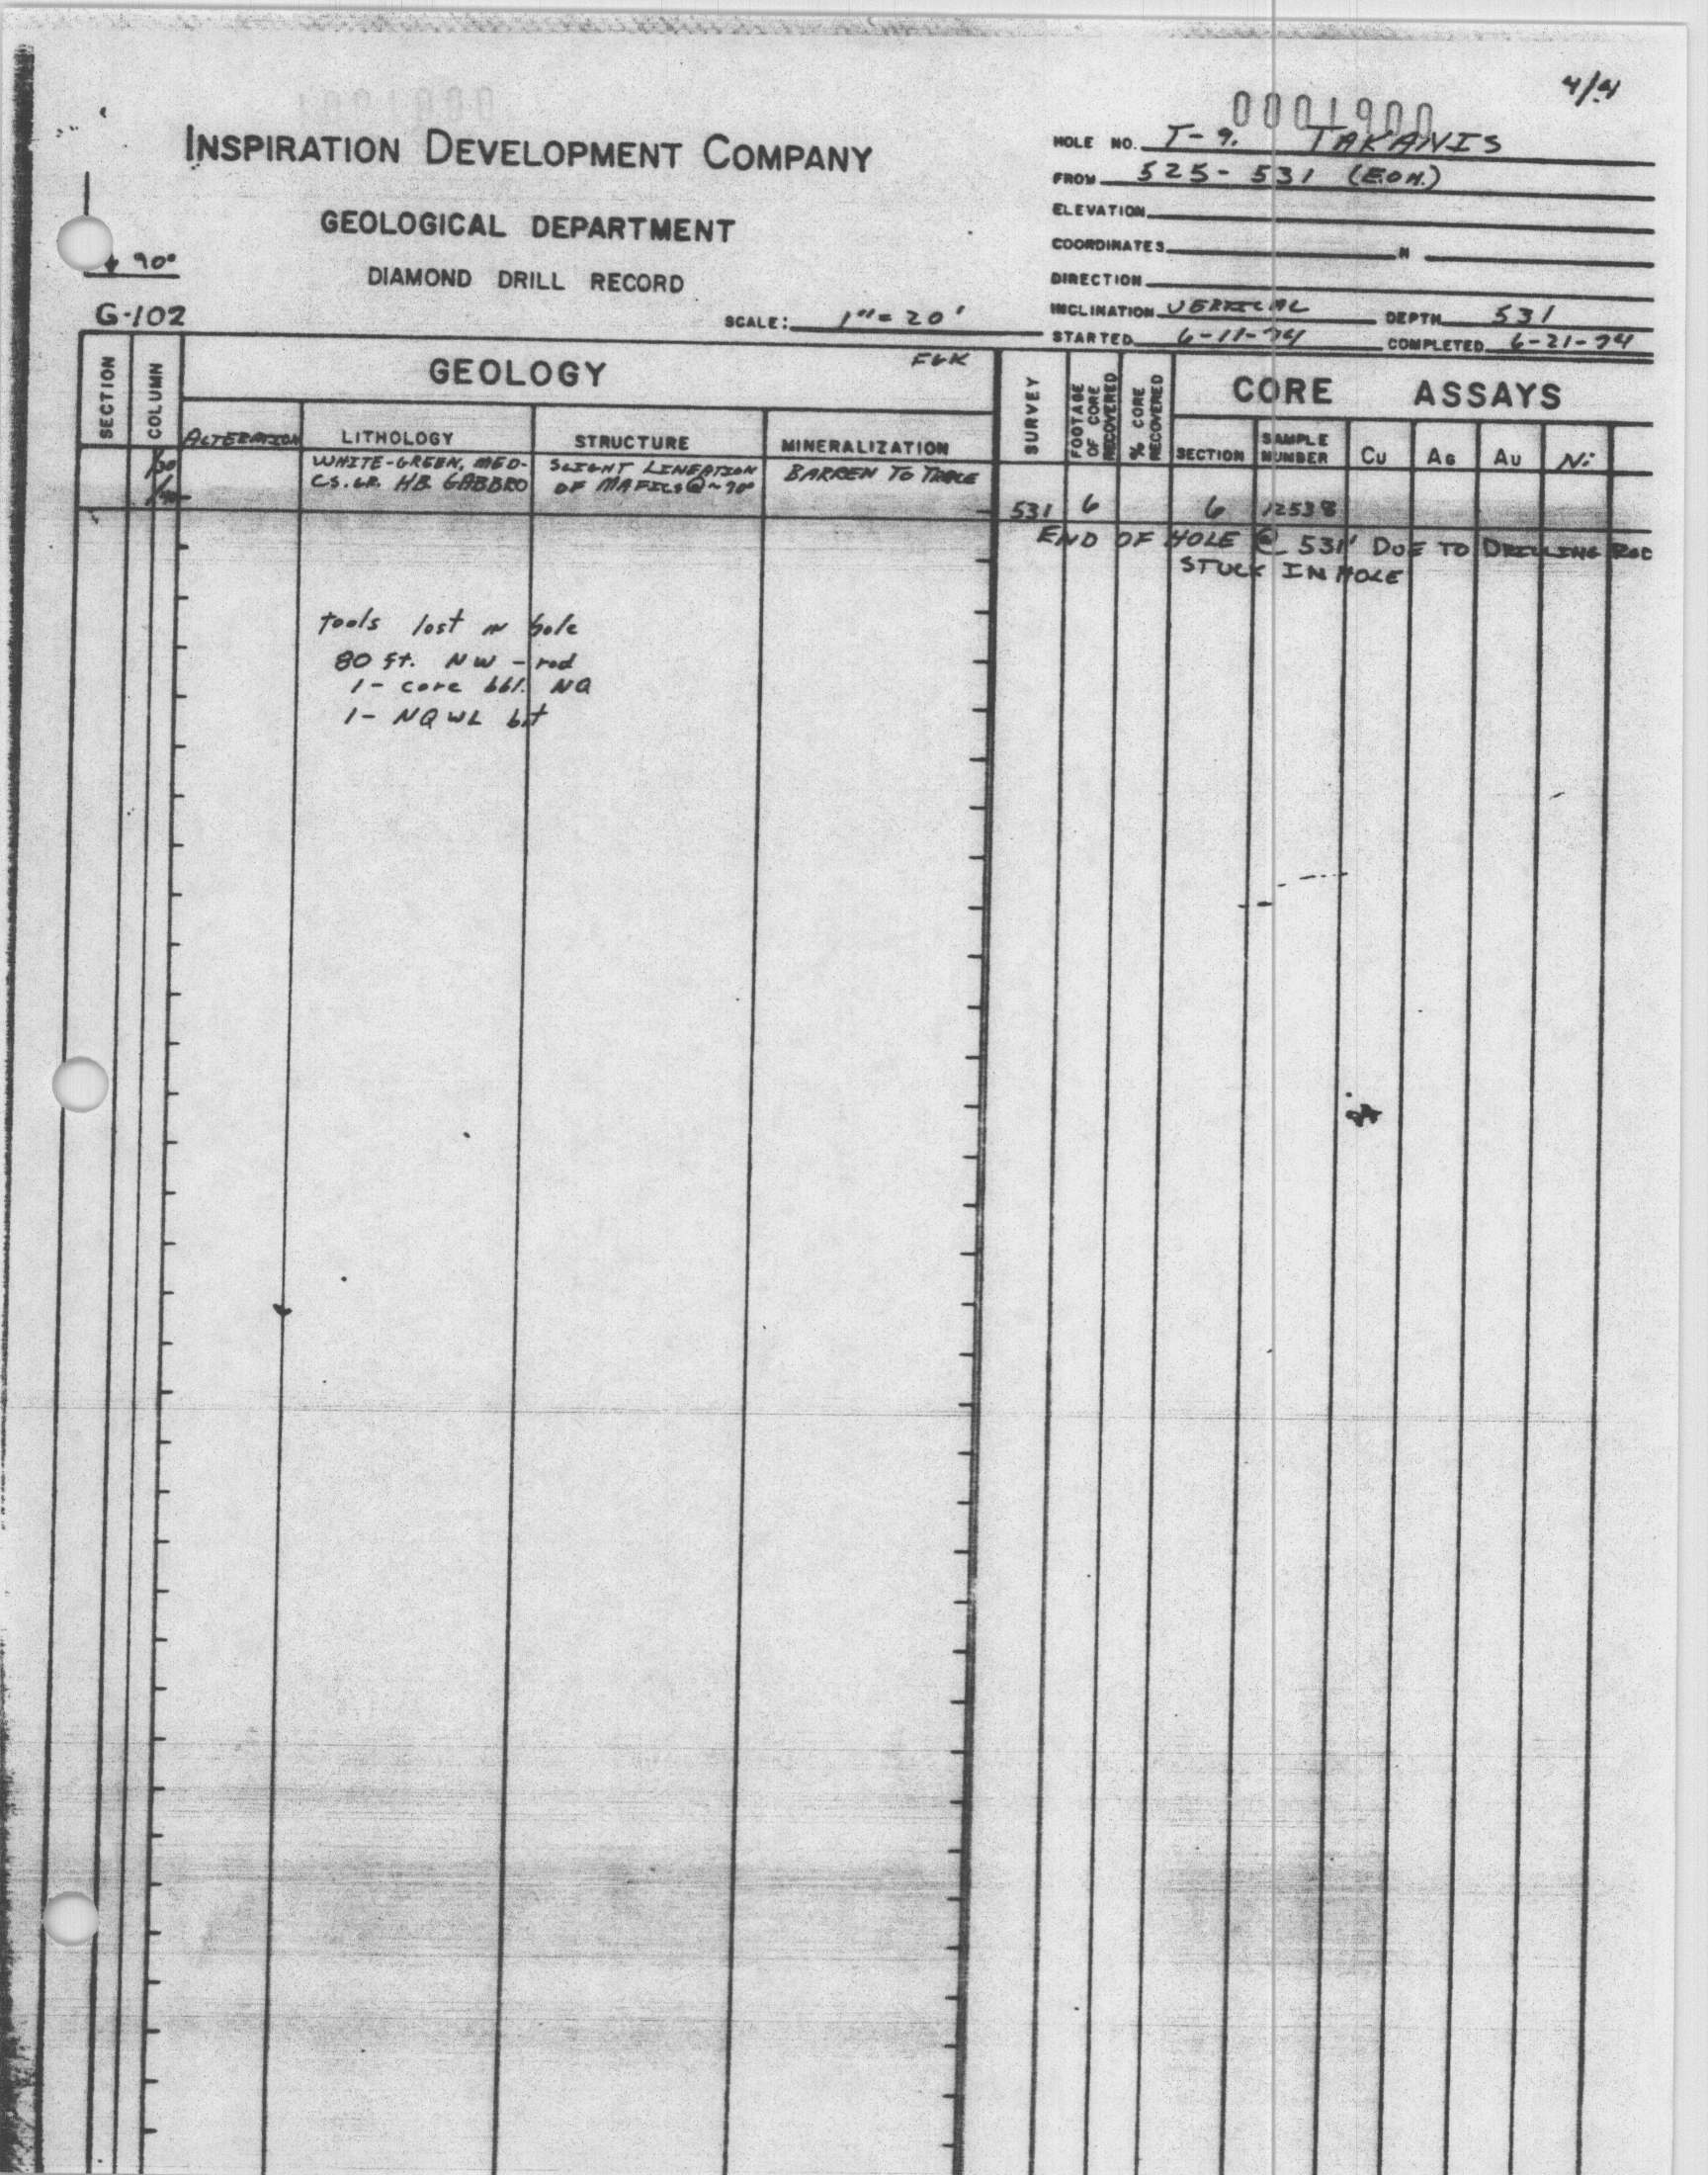 4/4
0001900
INSPIRATION DEVELOPMENT COMPANY
HOLE NO. T-9. TAKANIS
FROM 525 - 531 (E.O.H.)
GEOLOGICAL DEPARTMENT
ELEVATION
COORDINATES N
90°
DIAMOND DRILL RECORD
DIRECTION
G-102
SCALE: 1" = 20'
INCLINATION VERTICAL DEPTH 531
STARTED 6-11-74 COMPLETED 6-21-74
SECTION
COLUMN
GEOLOGY
FGK
SURVEY
FOOTAGE OF CORE RECOVERED
% CORE RECOVERED
CORE ASSAYS
ALTERATION LITHOLOGY STRUCTURE MINERALIZATION
SECTION SAMPLE NUMBER Cu AG AU Ni
WHITE-GREEN, MED- SLIGHT LINEATION BARREN TO TRACE
CS. GR. HB. GABBRO OF MAFICS @ ~90°
531 6 6 12538
END OF HOLE @ 531' DUE TO DRILLING ROD
STUCK IN HOLE
tools lost in hole
80 ft. NW - rod
1 - core bbl. NQ
1 - NQWL bit